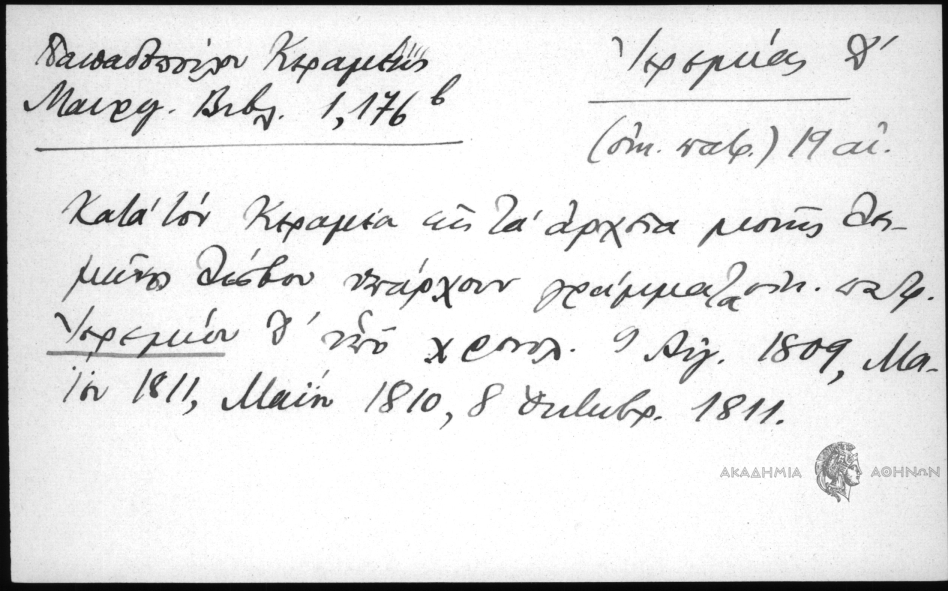 Παπαδοπούλου Κεραμέως
Μαυρογ. Βιβλ. 1,176 β
Ἱερεμίας Δ'
(οἰκ. πατρ.) 19 αἰ.
Κατὰ τὸν Κεραμέα εἰς τὰ ἀρχεῖα μονῆς Λει-
μῶνος Λέσβου ὑπάρχουν γράμματα οἰκ. πατρ.
Ἱερεμίου Δ' ὑπὸ χρονολ. 9 Αὐγ. 1809, Μα-
ΐου 1811, Μαΐου 1810, 8 Ὀκτωβρ. 1811.
ΑΚΑΔΗΜΙΑ ΑΘΗΝΩΝ